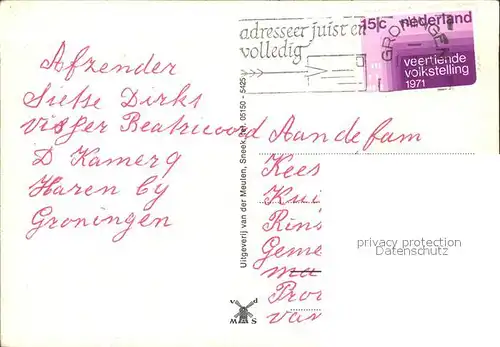 adresseer juist en
volledig
GRONINGEN
15c nederland
veertiende
volkstelling
1971
Afzender
Sietse Dirks
visser Beatrixoord
D Kamer 9
Haren by
Groningen
Uitgeverij van der Meulen, Sneek, Ref. 05150 - 5425
Aan de fam
Kees
Kui
Rins
Geme
ma
Prov
van
privacy protection
Datenschutz
v d
M S